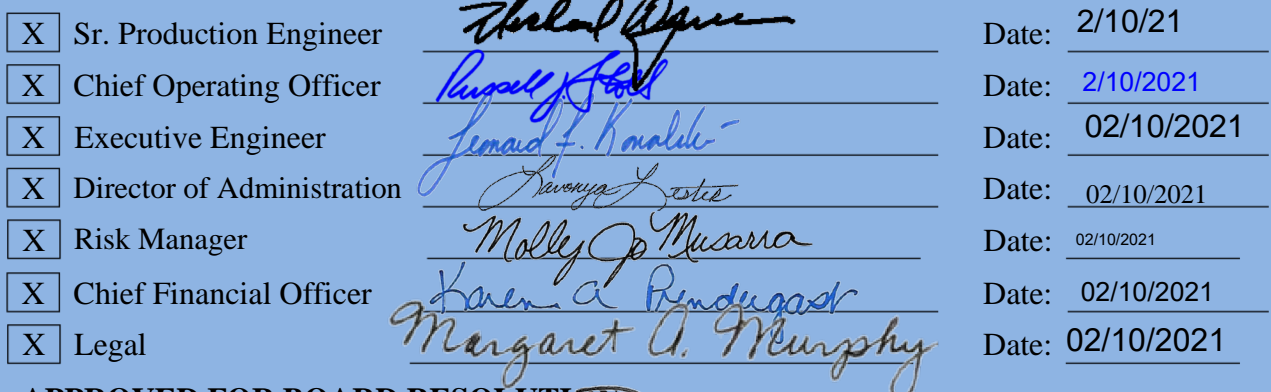 X Sr. Production Engineer Date: 2/10/21
X Chief Operating Officer Russell J. Date: 2/10/2021
X Executive Engineer Date: 02/10/2021
X Director of Administration Lavonya Lester Date: 02/10/2021
X Risk Manager Molly Jo Musarra Date: 02/10/2021
X Chief Financial Officer Karen A Prendergast Date: 02/10/2021
X Legal Margaret A. Murphy Date: 02/10/2021
APPROVED FOR BOARD